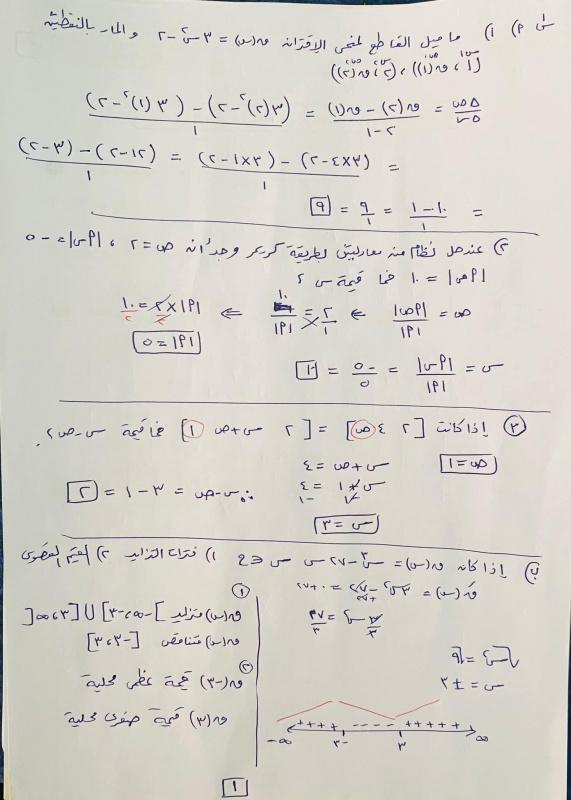 س١ P) ١) ما ميل القاطع لمنحنى الاقتران ق(س) = ٣س٢ - ٢ والمار بالنقطتين
(١، ق(١))، (٢، ق(٢))
Δص/Δس = (ق(٢) - ق(١))/(٢-١) = ((٣(٢)٢ - ٢) - (٣(١)٢ - ٢))/١
= ((٣×٤ - ٢) - (٣×١ - ٢))/١ = ((١٢-٢) - (٣-٢))/١
= (١٠-١)/١ = ٩/١ = ٩
٢) عند حل نظام من معادلتين بطريقة كريمر وجد أن ص = ٢ ، |Pس| = -٥
|Pص| = ١٠ فما قيمة س ؟
ص = |Pص|/|P| ⇐ ٢/١ = ١٠/|P| ⇐ |P|×٢/٢ = ١٠/٢
|P| = ٥
س = |Pس|/|P| = -٥/٥ = -١
٣) إذا كانت [٢ ٤ ص] = [٢ س+ص ١] فما قيمة س - ص ؟
ص = ١ س + ص = ٤
س + ١ = ٤
-١ -١
∴ س - ص = ٣ - ١ = ٢
س = ٣
ب) إذا كان ق(س) = س٣ - ٢٧س س ∈ ح ١) فترات التزايد ٢) القيم القصوى
قَ(س) = ٣س٢ - ٢٧ = ٠ +٢٧
+٢٧
٣س٢/٣ = ٢٧/٣
√س٢ = √٩
س = ±٣
-∞ ++++ -٣ ---- ٣ +++++ ∞
١
ق(س) متزايد ]-∞، -٣] ∪ [٣، ∞[
ق(س) متناقص [-٣، ٣]
٢
ق(-٣) قيمة عظمى محلية
ق(٣) قيمة صغرى محلية
١